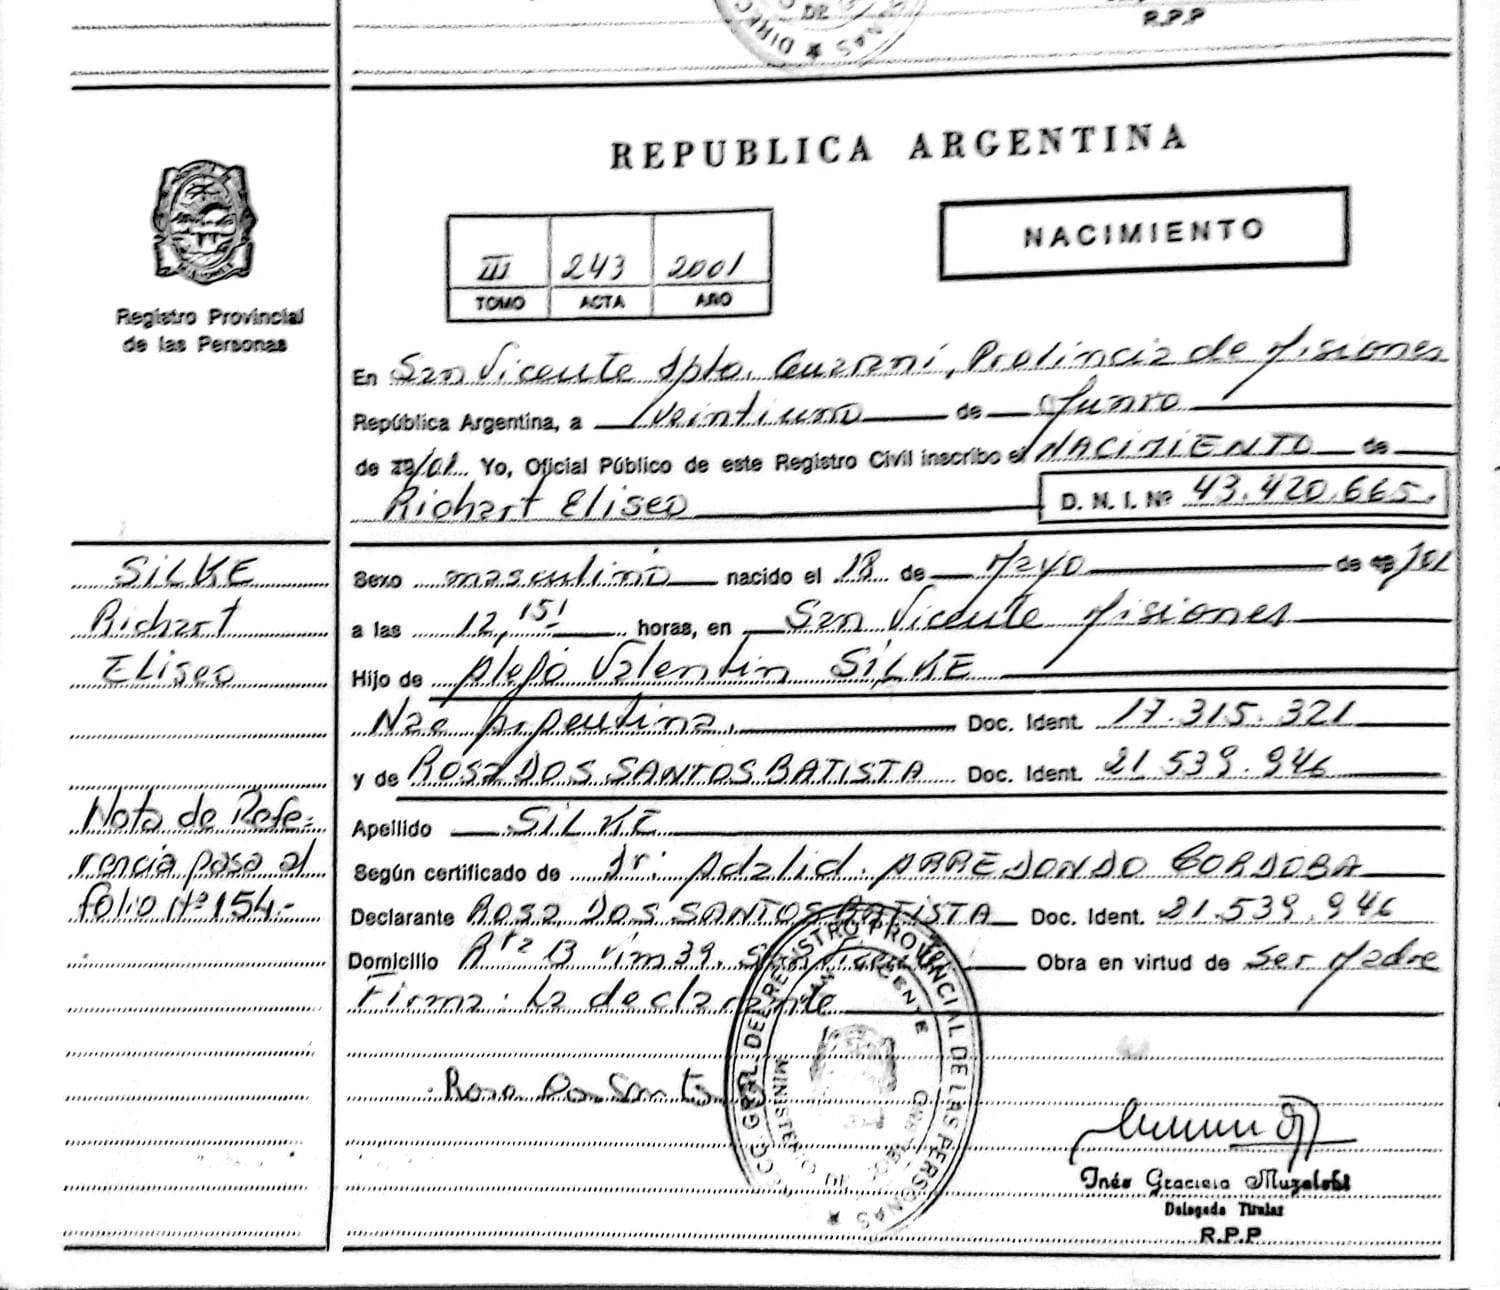 DE
R.P.P
REPUBLICA ARGENTINA
NACIMIENTO
III 243 2001
TOMO ACTA AÑO
Registro Provincial
de las Personas
En San Vicente Dpto. Guaraní, Provincia de Misiones
República Argentina, a Veintiuno de Junio
de 19/01. Yo, Oficial Público de este Registro Civil inscribo el NACIMIENTO de
Richart Eliseo D. N. I. Nº 43.420.665.
SILKE
Richart
Eliseo
Sexo masculino nacido el 18 de Mayo de 19/01
a las 12,15' horas, en San Vicente Misiones
Hijo de Alejo Valentin SILKE
Nac Argentina. Doc. Ident. 17.315.321
y de ROSA DOS SANTOS BATISTA Doc. Ident. 21.539.946
Nota de Refe-
rencia pasa al
folio Nº 154.-
Apellido SILKE
Según certificado de Dr. Adalid ARREDONDO CORDOBA
Declarante ROSA DOS SANTOS BATISTA Doc. Ident. 21.539.946
Domicilio Rta 13 Km 39. San Vicente Obra en virtud de Ser Madre
Firma: La declarante
Rosa Dos Santos
GRAL. DEL REGISTRO PROVINCIAL DE LAS PERSONAS
SAN VICENTE
MINISTERIO DE
Inés Graciela
Delegada Titular
R.P.P